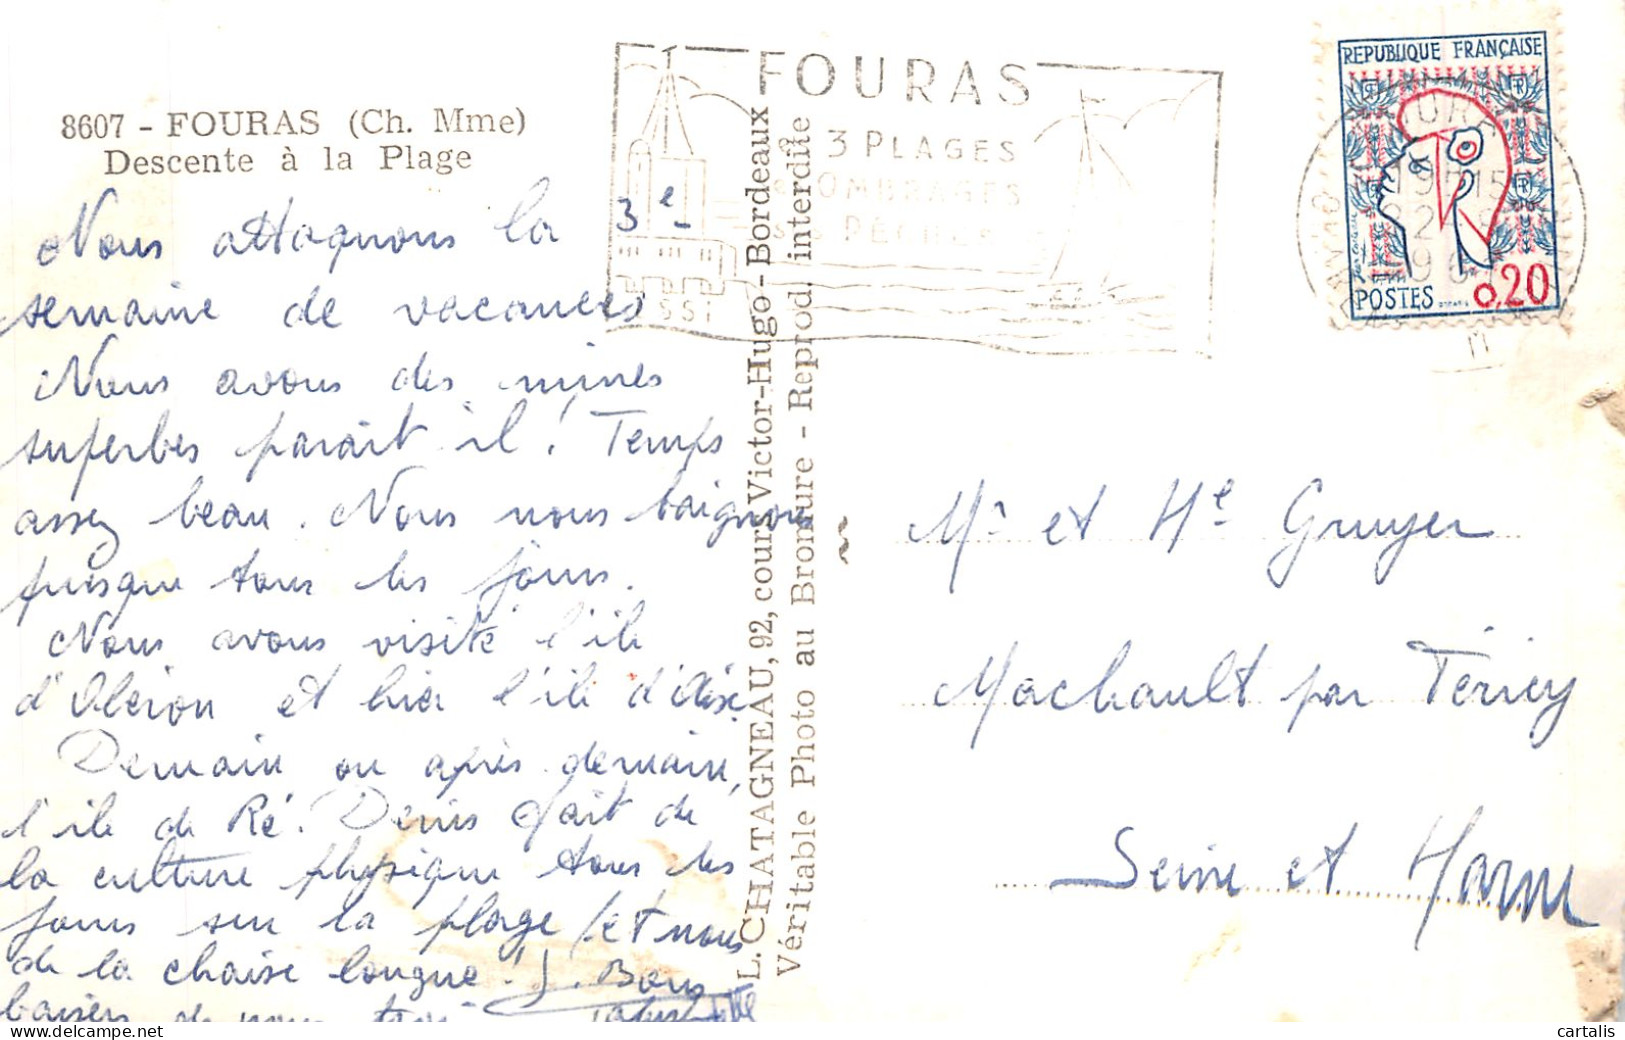 8607 - FOURAS (Ch. Mme)
Descente à la Plage
Nous attaquons la 3e
semaine de vacances
Nous avons des mines
superbes parait il! Temps
assez beau. Nous nous baignons
presque tous les jours.
Nous avons visité l'ile
d'Oléron et hier l'ile d'Aix.
Demain ou après demain,
l'ile de Ré. Denis fait de
la culture physique tous les
jours sur la plage (et nous
de la chaise longue!). Bons
baisers de nous trois
L. CHATAGNEAU, 92, cours Victor-Hugo - Bordeaux
Véritable Photo au Bromure - Reprod. interdite
FOURAS
3 PLAGES
OMBRAGES
PÊCHE
REPUBLIQUE FRANÇAISE
POSTES 0,20
Mr et Me Gruyer
Machault par Féricy
Seine et Marne
cartalis